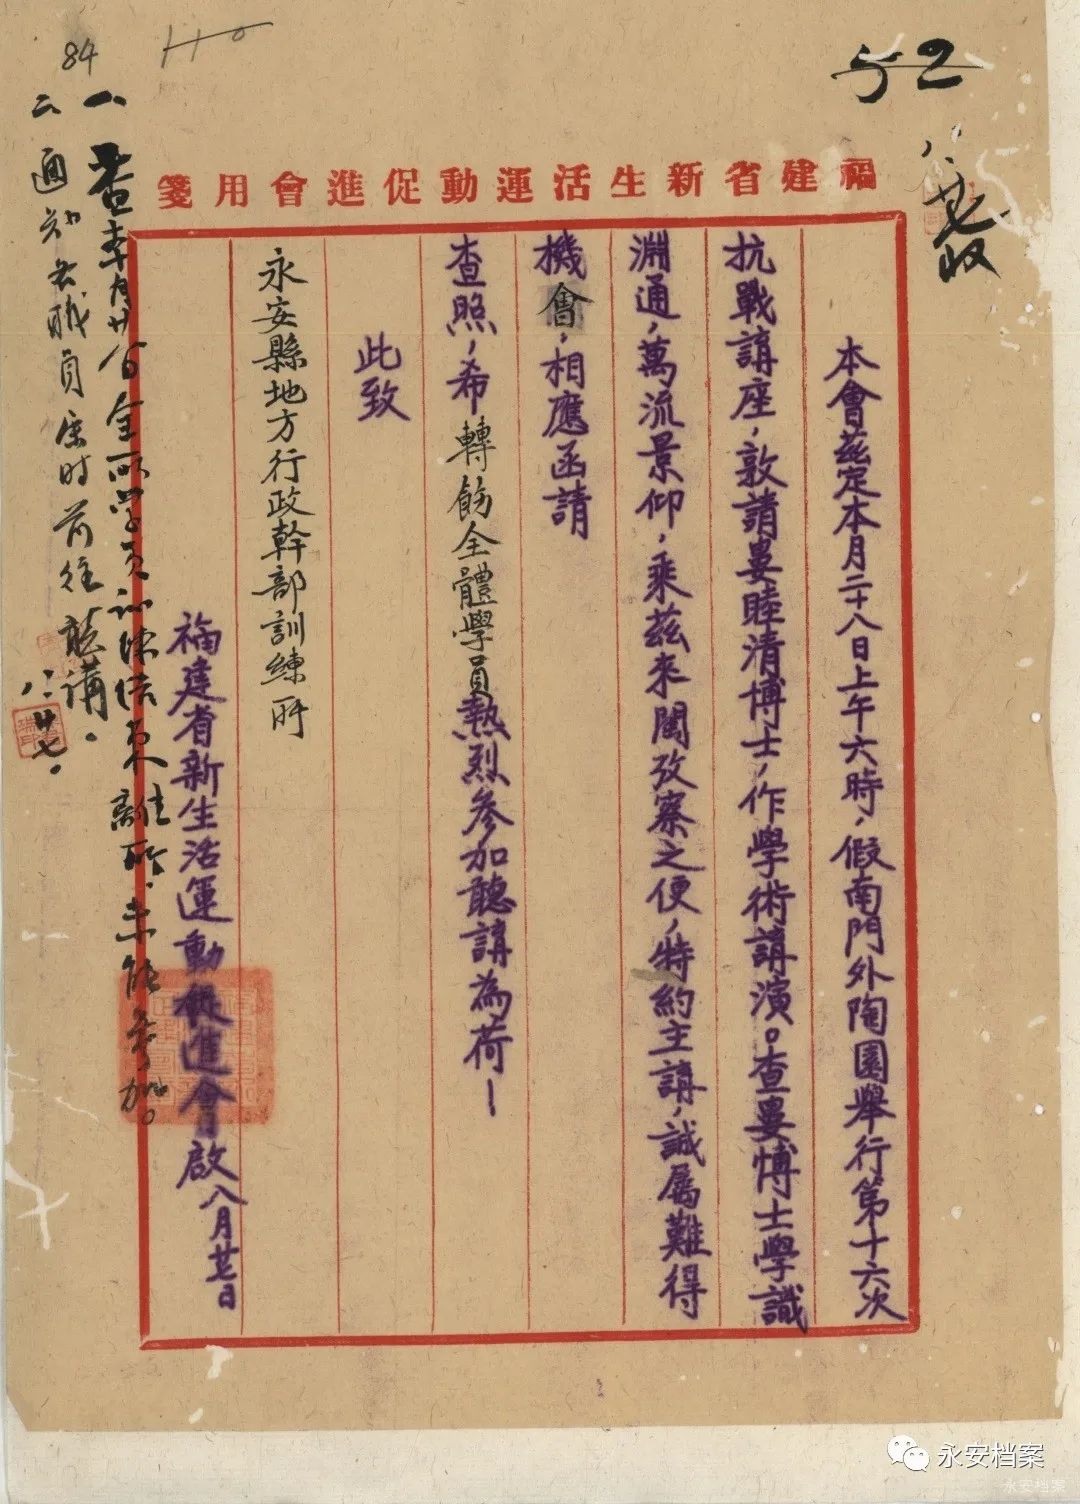 84
52
八、廿七收
福建省新生活運動促進會用箋
本會茲定本月二十八日上午六時，假南門外陶園舉行第十六次
抗戰講座，敦請婁睦清博士，作學術講演。查婁博士學識
淵通，萬流景仰，乘茲來閩攷察之便，特約主講，誠屬難得
機會，相應函請
查照，希轉飭全體學員熱烈參加聽講為荷！
此致
永安縣地方行政幹部訓練所
福建省新生活運動促進會啟八月廿七日
一、查本月廿八日全所學員訓練結束離所，未能參加。
二、通知各職員届时前往聽講。
八、廿七。
永安档案
永安档案